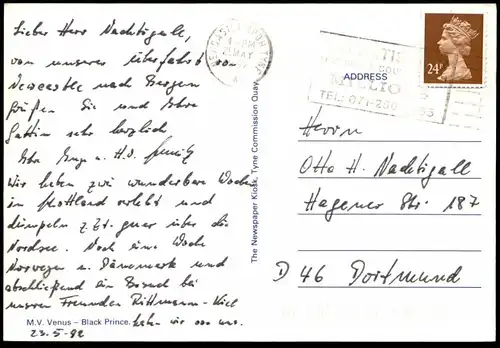 Lieber Herr Nachtigall,
von unserer Überfahrt von
Newcastle nach Bergen
grüßen Sie und Ihre
Gattin sehr herzlich
Ihre u. H.O.
Wir haben zwei wunderbare Wochen
in Schottland erlebt und
dümpeln z. Zt. quer über die
Nordsee. Noch eine Woche
Norwegen u. Dänemark und
abschließend ein Besuch bei
unseren Freunden
haben wir vor uns.
23.5-92
M.V. Venus – Black Prince.
The Newspaper Kiosk, Tyne Commission Quay
PM
MAY
TEL: 071-
24P
ADDRESS
Herrn
Otto H. Nachtigall
Hagener Str. 187
D 46 Dortmund